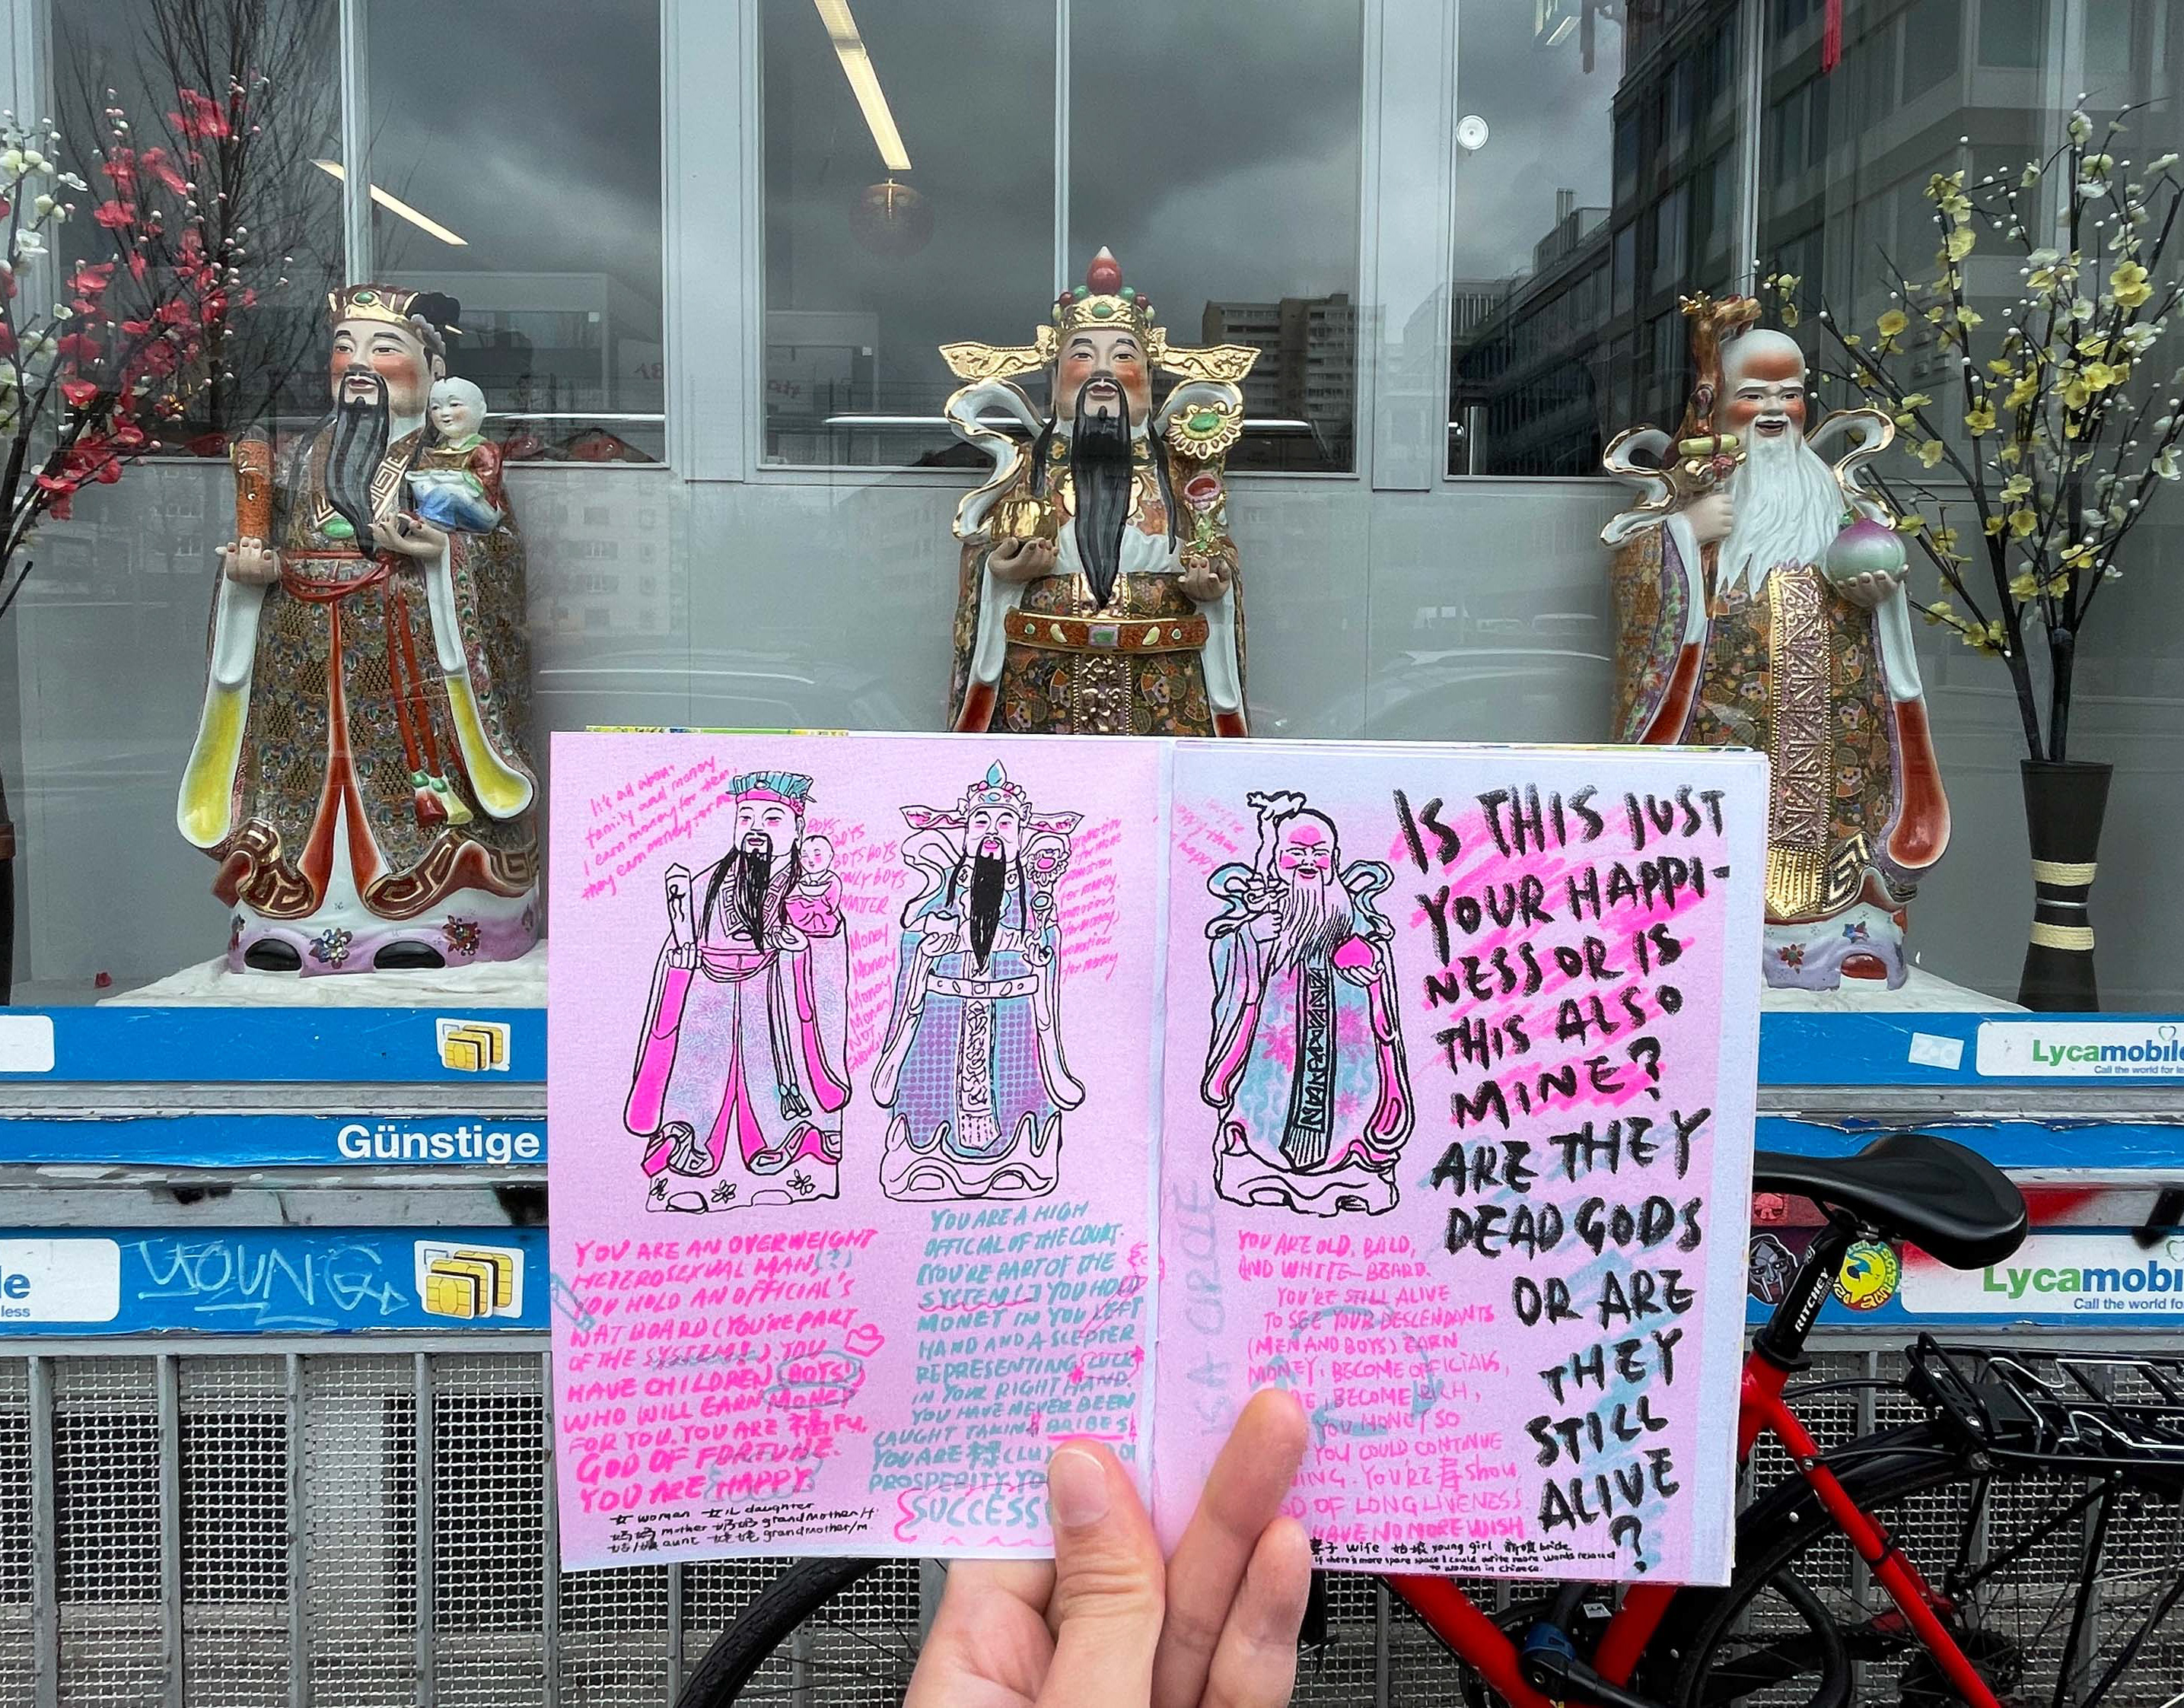 It's all about
family and money
I earn money for them,
they earn money for me
BOYS
BOYS
BOYS BOYS
ONLY BOYS
MATTER.
Money
Money
Money
Money
Money
NOT
for money
for money
YOU ARE AN OVERWEIGHT
HETEROSEXUAL MAN(?)
YOU HOLD AN OFFICIAL'S
HAT BOARD (YOU'RE PART
OF THE SYSTEM!). YOU
HAVE CHILDREN (BOYS!)
WHO WILL EARN MONEY
FOR YOU. YOU ARE 福 FU,
GOD OF FORTUNE.
YOU ARE HAPPY.
女 woman 女儿 daughter
妈妈 mother 奶奶 grandmother/f.
姑/姨 aunt 姥姥 grandmother/m.
YOU ARE A HIGH
OFFICIAL OF THE COURT.
(YOU'RE PART OF THE
SYSTEM!) YOU HOLD
MONEY IN YOU LEFT
HAND AND A SCEPTER
REPRESENTING POWER
IN YOUR RIGHT HAND.
YOU HAVE NEVER BEEN
CAUGHT TAKING BRIBES.
YOU ARE 禄 (LU)
PROSPERITY. YO
SUCCESS
YOU ARE OLD, BALD,
AND WHITE-BEARD.
YOU'RE STILL ALIVE
TO SEE YOUR DESCENDANTS
(MEN AND BOYS) EARN
MONEY, BECOME OFFICIALS,
BECOME RICH,
YOU MONEY SO
YOU COULD CONTINUE
ING. YOU'RE 寿 Shou,
OD OF LONGLIVENESS.
HAVE NO MORE WISH
妻子 wife 姑娘 young girl 新娘 bride
if there's more spare space I could write more words related
to women in Chinese.
IS THIS JUST
YOUR HAPPI-
NESS OR IS
THIS ALSO
MINE?
ARE THEY
DEAD GODS
OR ARE
THEY
STILL
ALIVE
?
Lycamobile
Call the world for le
Günstige
le
less
YOUNG
RITCHEY
Lycamobil
Call the world fo